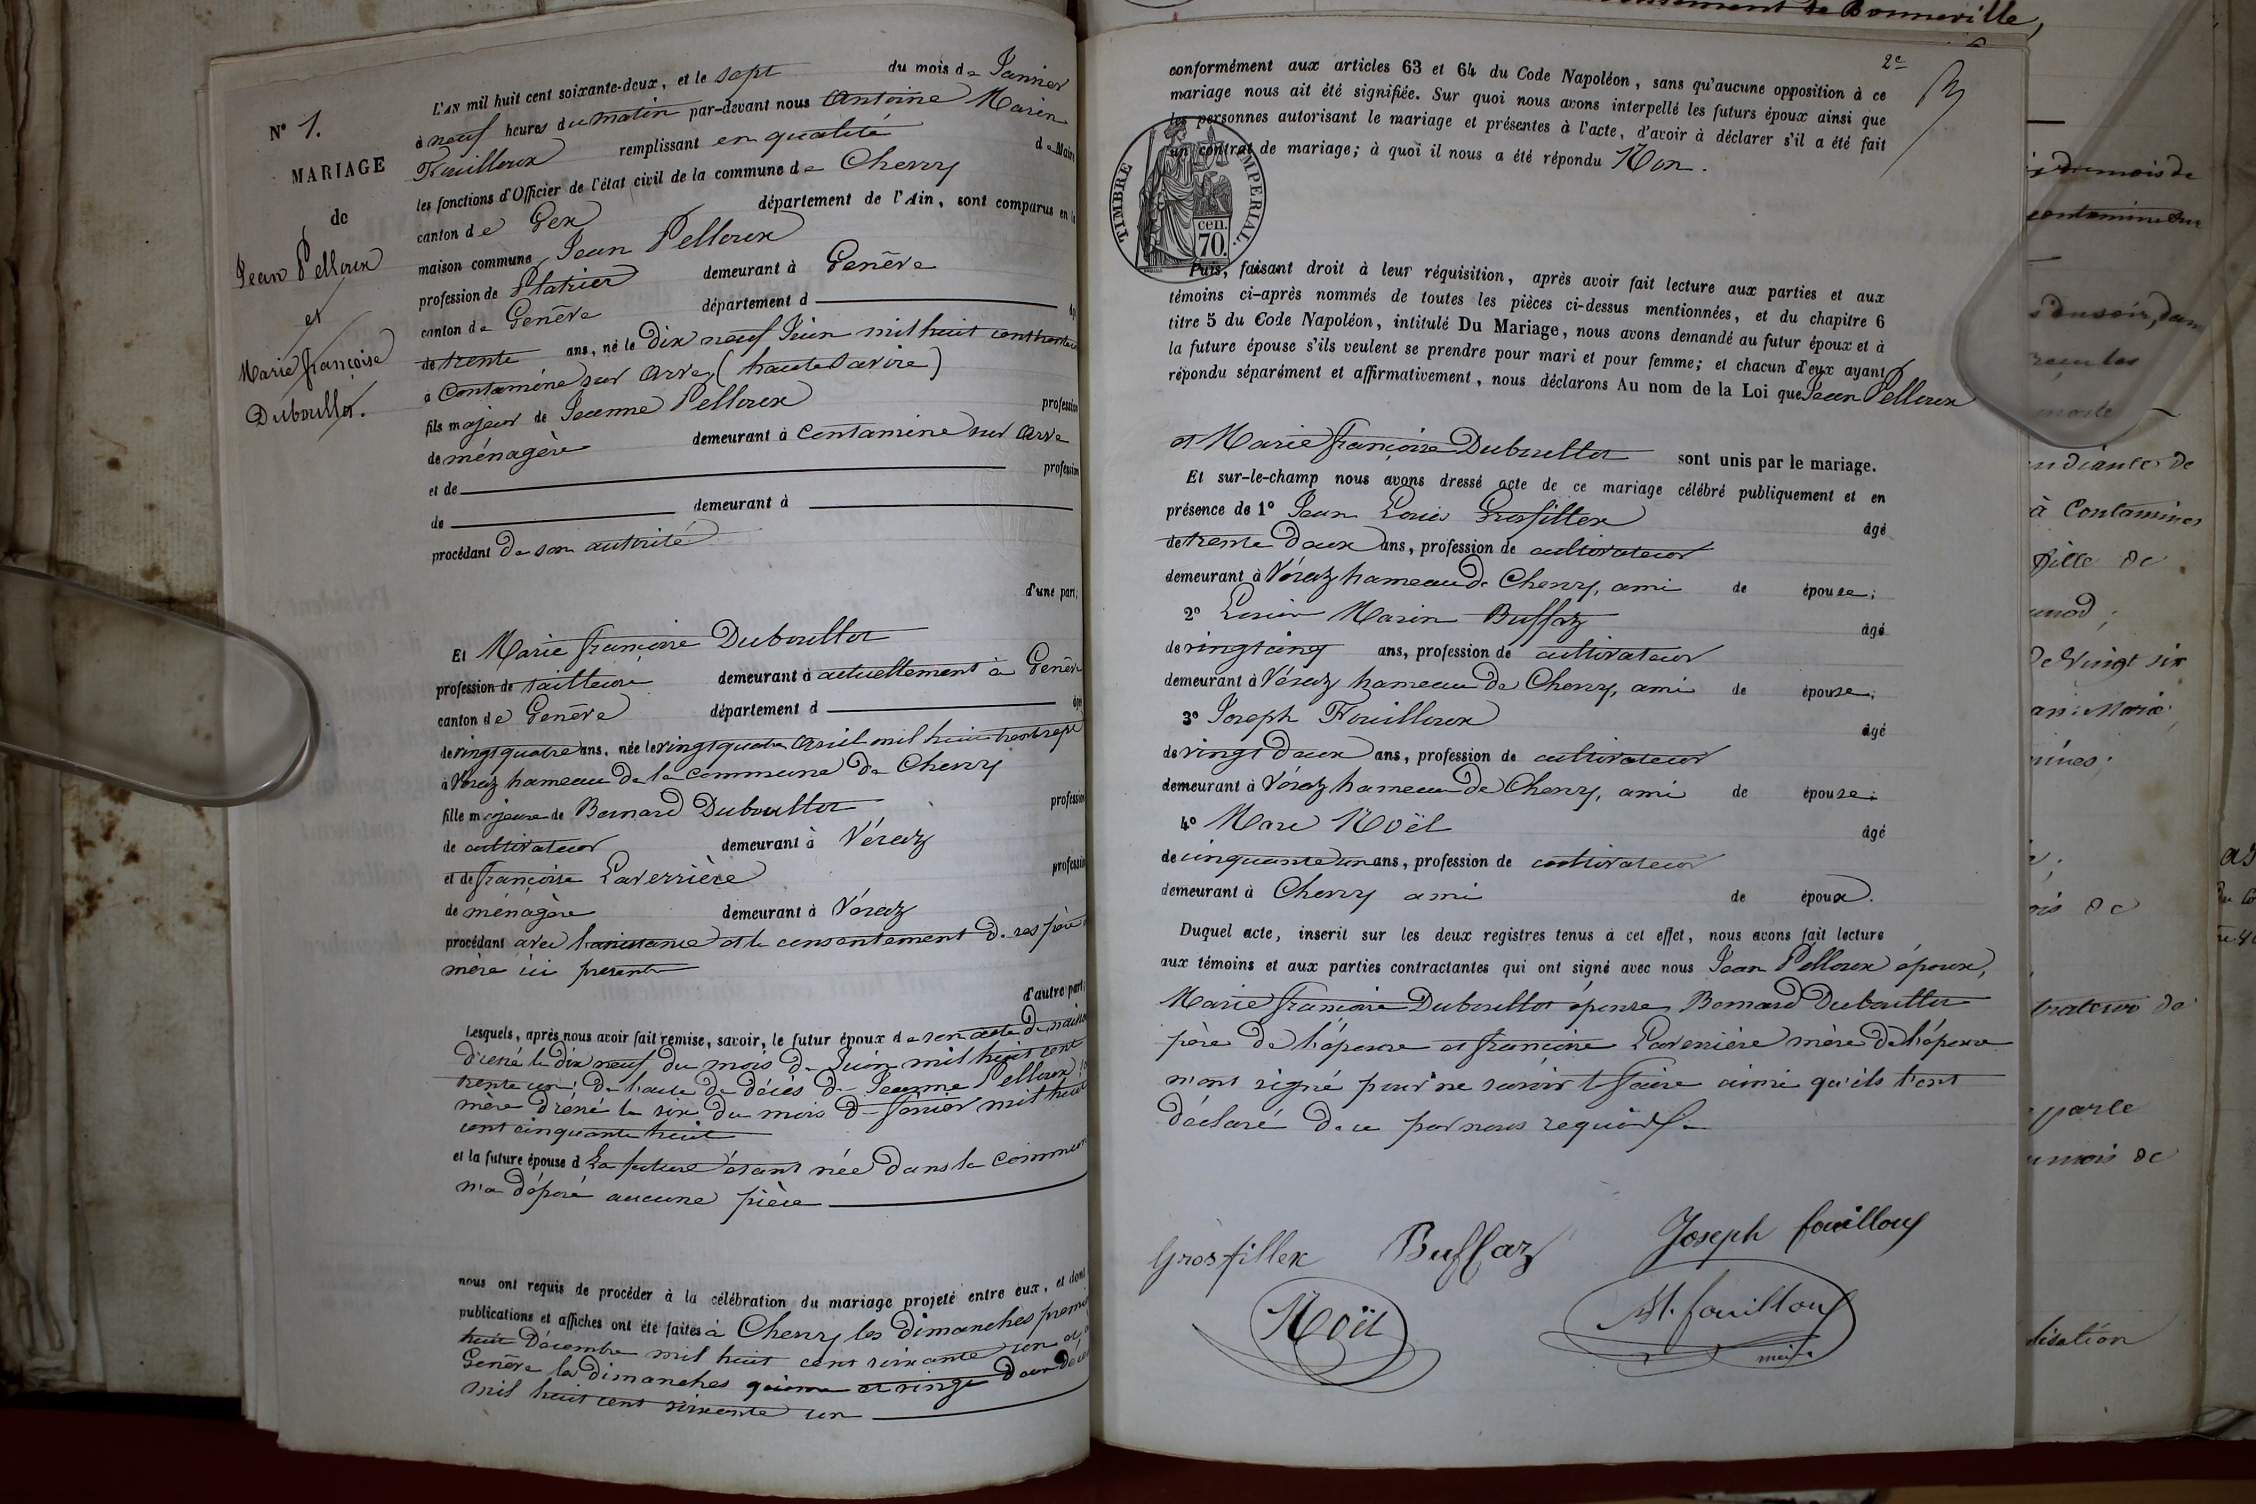 N° 1.
MARIAGE
de
Jean Pelloux
et
Marie françoise
Duboullot.
L'AN mil huit cent soixante-deux, et le sept du mois de Janvier
à neuf heures du matin par-devant nous Antoine Marin
Fouilloux remplissant en qualité de Maire
les fonctions d'Officier de l'état civil de la commune de Chevry
canton de Gex département de l'Ain, sont comparus en la
maison commune Jean Pelloux
profession de Platrier demeurant à Genêve
canton de Genêve département d
de trente ans, né le dix neuf Juin mil huit cent trente un
à Contamine sur Arve, (haute Savoie)
fils majeur de Jeanne Pelloux profession
de ménagère demeurant à Contamine sur Arve
et de profession
de demeurant à
procédant de son autorité
d'une part;
Et Marie françoise Duboullot
profession de tailleuse demeurant à actuellement à Genêve
canton de Genêve département d âgée
de vingt quatre ans, née le vingt quatre Avril mil huit trente sept
à Véraz hameau de la commune de Chevry
fille majeure de Bernard Duboullot profession
de cultivateur demeurant à Véraz
et de françoise Laverrière profession
de ménagère demeurant à Véraz
procédant avec l'assistance et le consentement de ses père et
mère ici présents
d'autre part;
Lesquels, après nous avoir fait remise, savoir, le futur époux de son acte de naissance
dréssé le dix neuf du mois de Juin mil huit cent
trente un; de l'acte de décès de Jeanne Pelloux sa
mère dréssé le six du mois de février mil huit
cent cinquante huit
et la future épouse d La future étant née dans la commune
n'a déposé aucune pièce
nous ont requis de procéder à la célébration du mariage projeté entre eux, et dont
publications et affiches ont été faites à Chevry les dimanches premier
huit Décembre mil huit cent soixante un et à
Genêve les dimanches quinze et vingt deux décembre
mil huit cent soixante un
2e
conformément aux articles 63 et 64 du Code Napoléon, sans qu'aucune opposition à ce
mariage nous ait été signifiée. Sur quoi nous avons interpellé les futurs époux ainsi que
les personnes autorisant le mariage et présentes à l'acte, d'avoir à déclarer s'il a été fait
un contrat de mariage; à quoi il nous a été répondu Non.
TIMBRE IMPERIAL.
cen.
70.
Puis, faisant droit à leur réquisition, après avoir fait lecture aux parties et aux
témoins ci-après nommés de toutes les pièces ci-dessus mentionnées, et du chapitre 6
titre 5 du Code Napoléon, intitulé Du Mariage, nous avons demandé au futur époux et à
la future épouse s'ils veulent se prendre pour mari et pour femme; et chacun d'eux ayant
répondu séparément et affirmativement, nous déclarons Au nom de la Loi que Jean Pelloux
et Marie françoise Duboullot sont unis par le mariage.
Et sur-le-champ nous avons dressé acte de ce mariage célébré publiquement et en
présence de 1° Jean Louis Grosfillex âgé
de trente deux ans, profession de cultivateur
demeurant à Véraz hameau de Chevry, ami de épouse;
2° Louis Marin Buffaz âgé
de vingt cinq ans, profession de cultivateur
demeurant à Véraz hameau de Chevry, ami de épouse;
3° Joseph Fouilloux âgé
de vingt deux ans, profession de cultivateur
demeurant à Véraz hameau de Chevry, ami de épouse;
4° Marc Noël âgé
de cinquante un ans, profession de cultivateur
demeurant à Chevry ami de époux.
Duquel acte, inscrit sur les deux registres tenus à cet effet, nous avons fait lecture
aux témoins et aux parties contractantes qui ont signé avec nous Jean Pelloux époux,
Marie françoise Duboullot épouse, Bernard Duboullot
père de l'épouse et françoise Laverrière mère de l'épouse
n'ont signé pour ne savoir le faire ainsi qu'ils l'ont
déclaré de ce par nous requis
Grosfillex Buffaz Joseph fouilloux
Noël M. fouilloux
maire
de Bonneville,
du mois de
à Contamines
fille de
de Vingt six
mois de